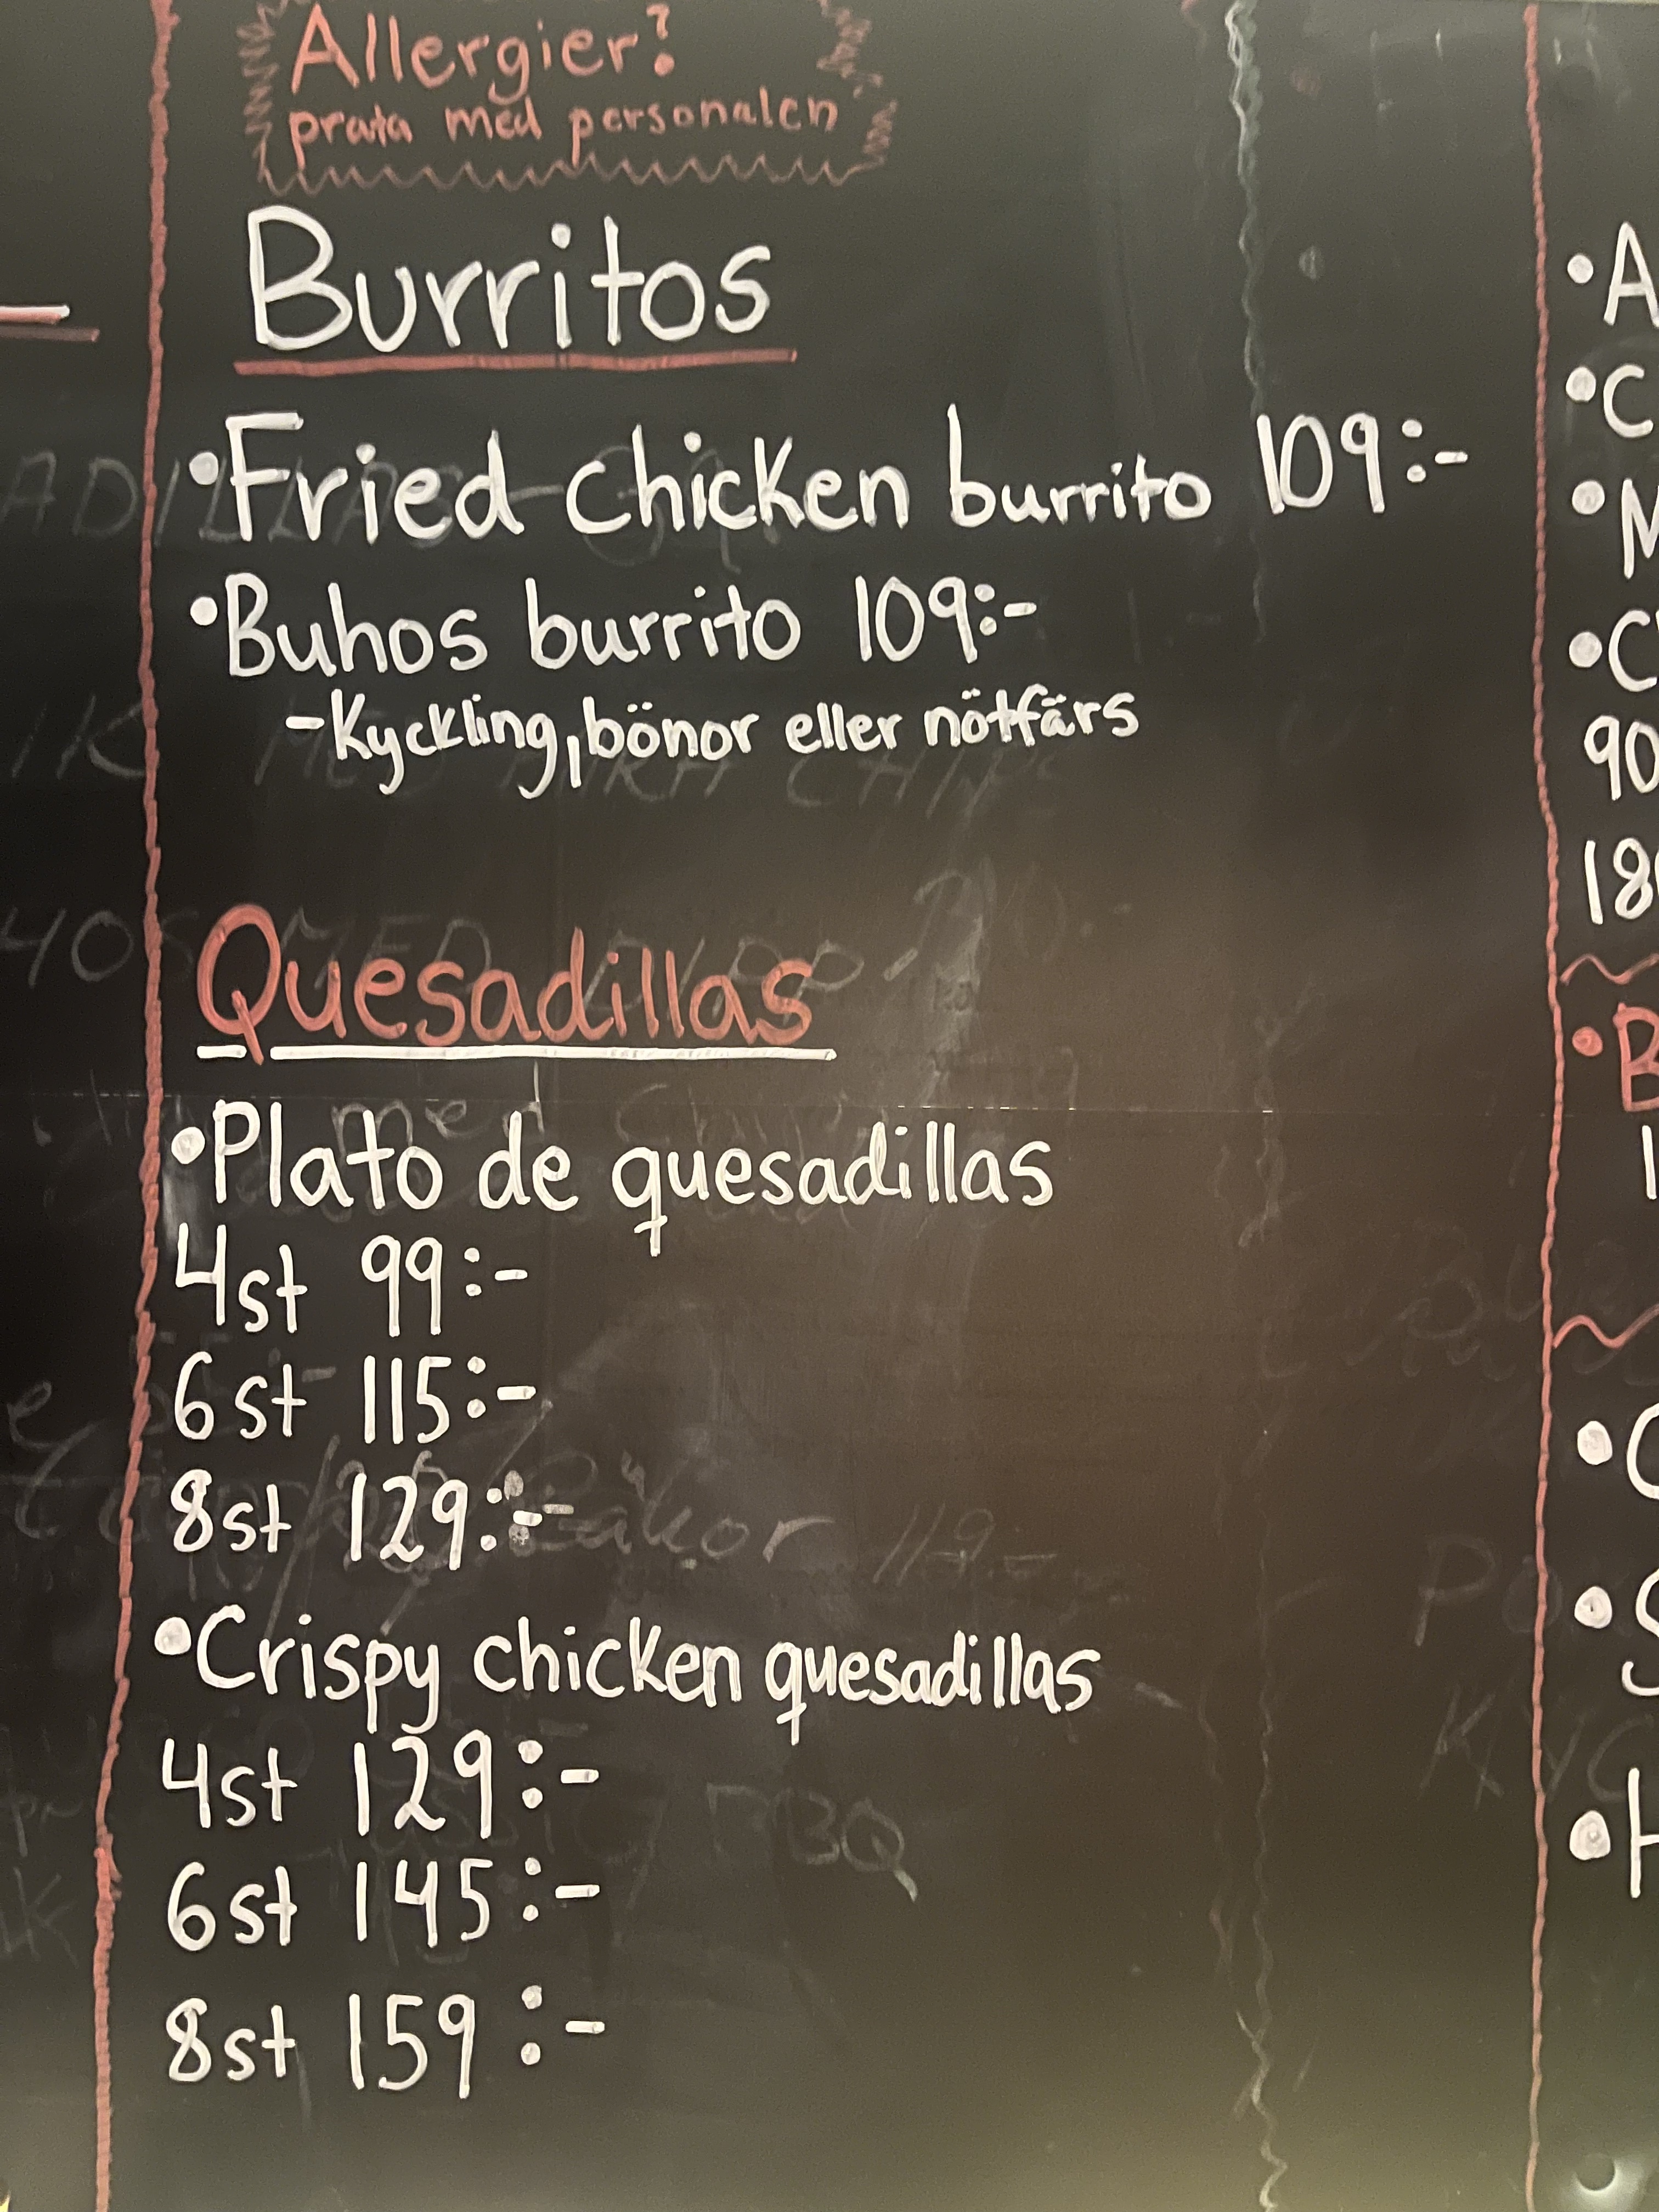 Allergier?
prata med personalen
Burritos
•Fried chicken burrito 109:-
•Buhos burrito 109:-
-Kyckling, bönor eller nötfärs
Quesadillas
•Plato de quesadillas
4st 99:-
6st 115:-
8st 129:-
•Crispy chicken quesadillas
4st 129:-
6st 145:-
8st 159:-
•A
•C
•M
•C
90
18
•B
1
•C
•S
•H